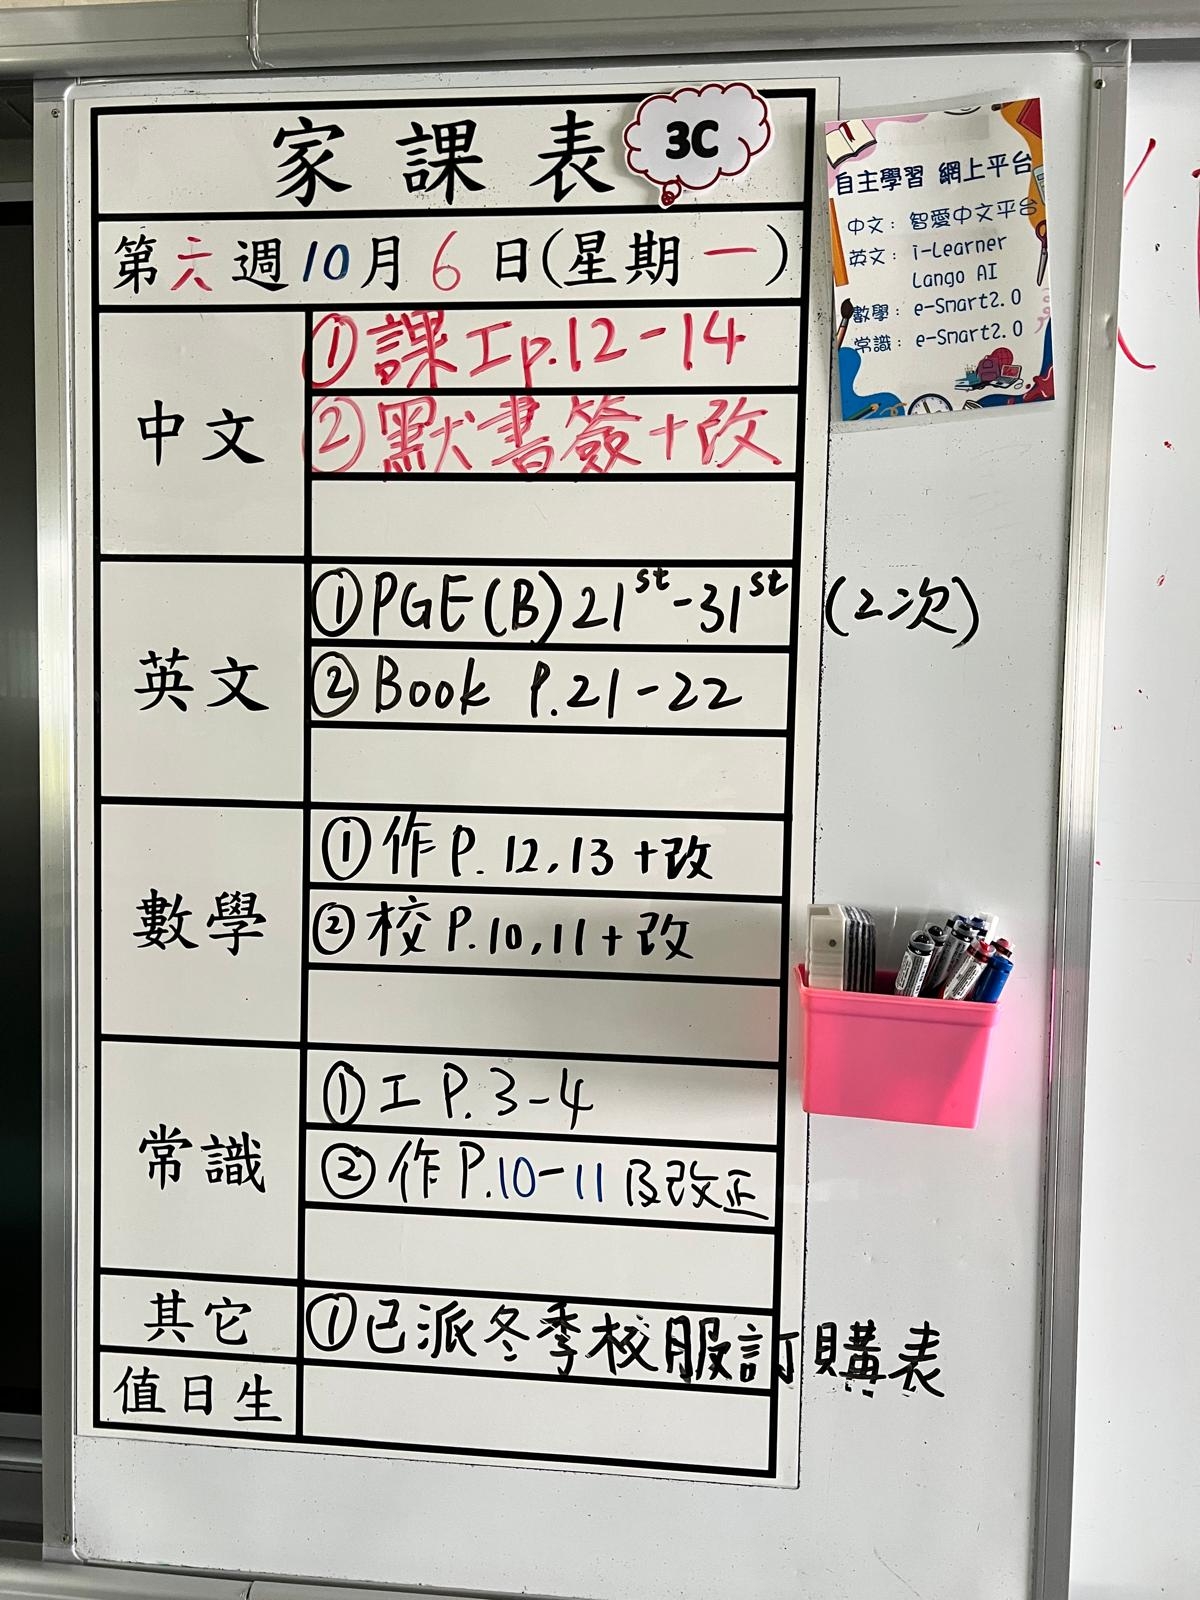 家課表 3C
第六週10月6日(星期一)
中文
①課工p.12-14
②默書簽+改
英文
①PGE(B)21st-31st (2次)
②Book P.21-22
數學
①作P.12,13+改
②校P.10,11+改
常識
①工P.3-4
②作P.10-11及改正
其它
①已派冬季校服訂購表
值日生
自主學習 網上平台
中文：智愛中文平台
英文：i-Learner
Lango AI
數學：e-Smart2.0
常識：e-Smart2.0